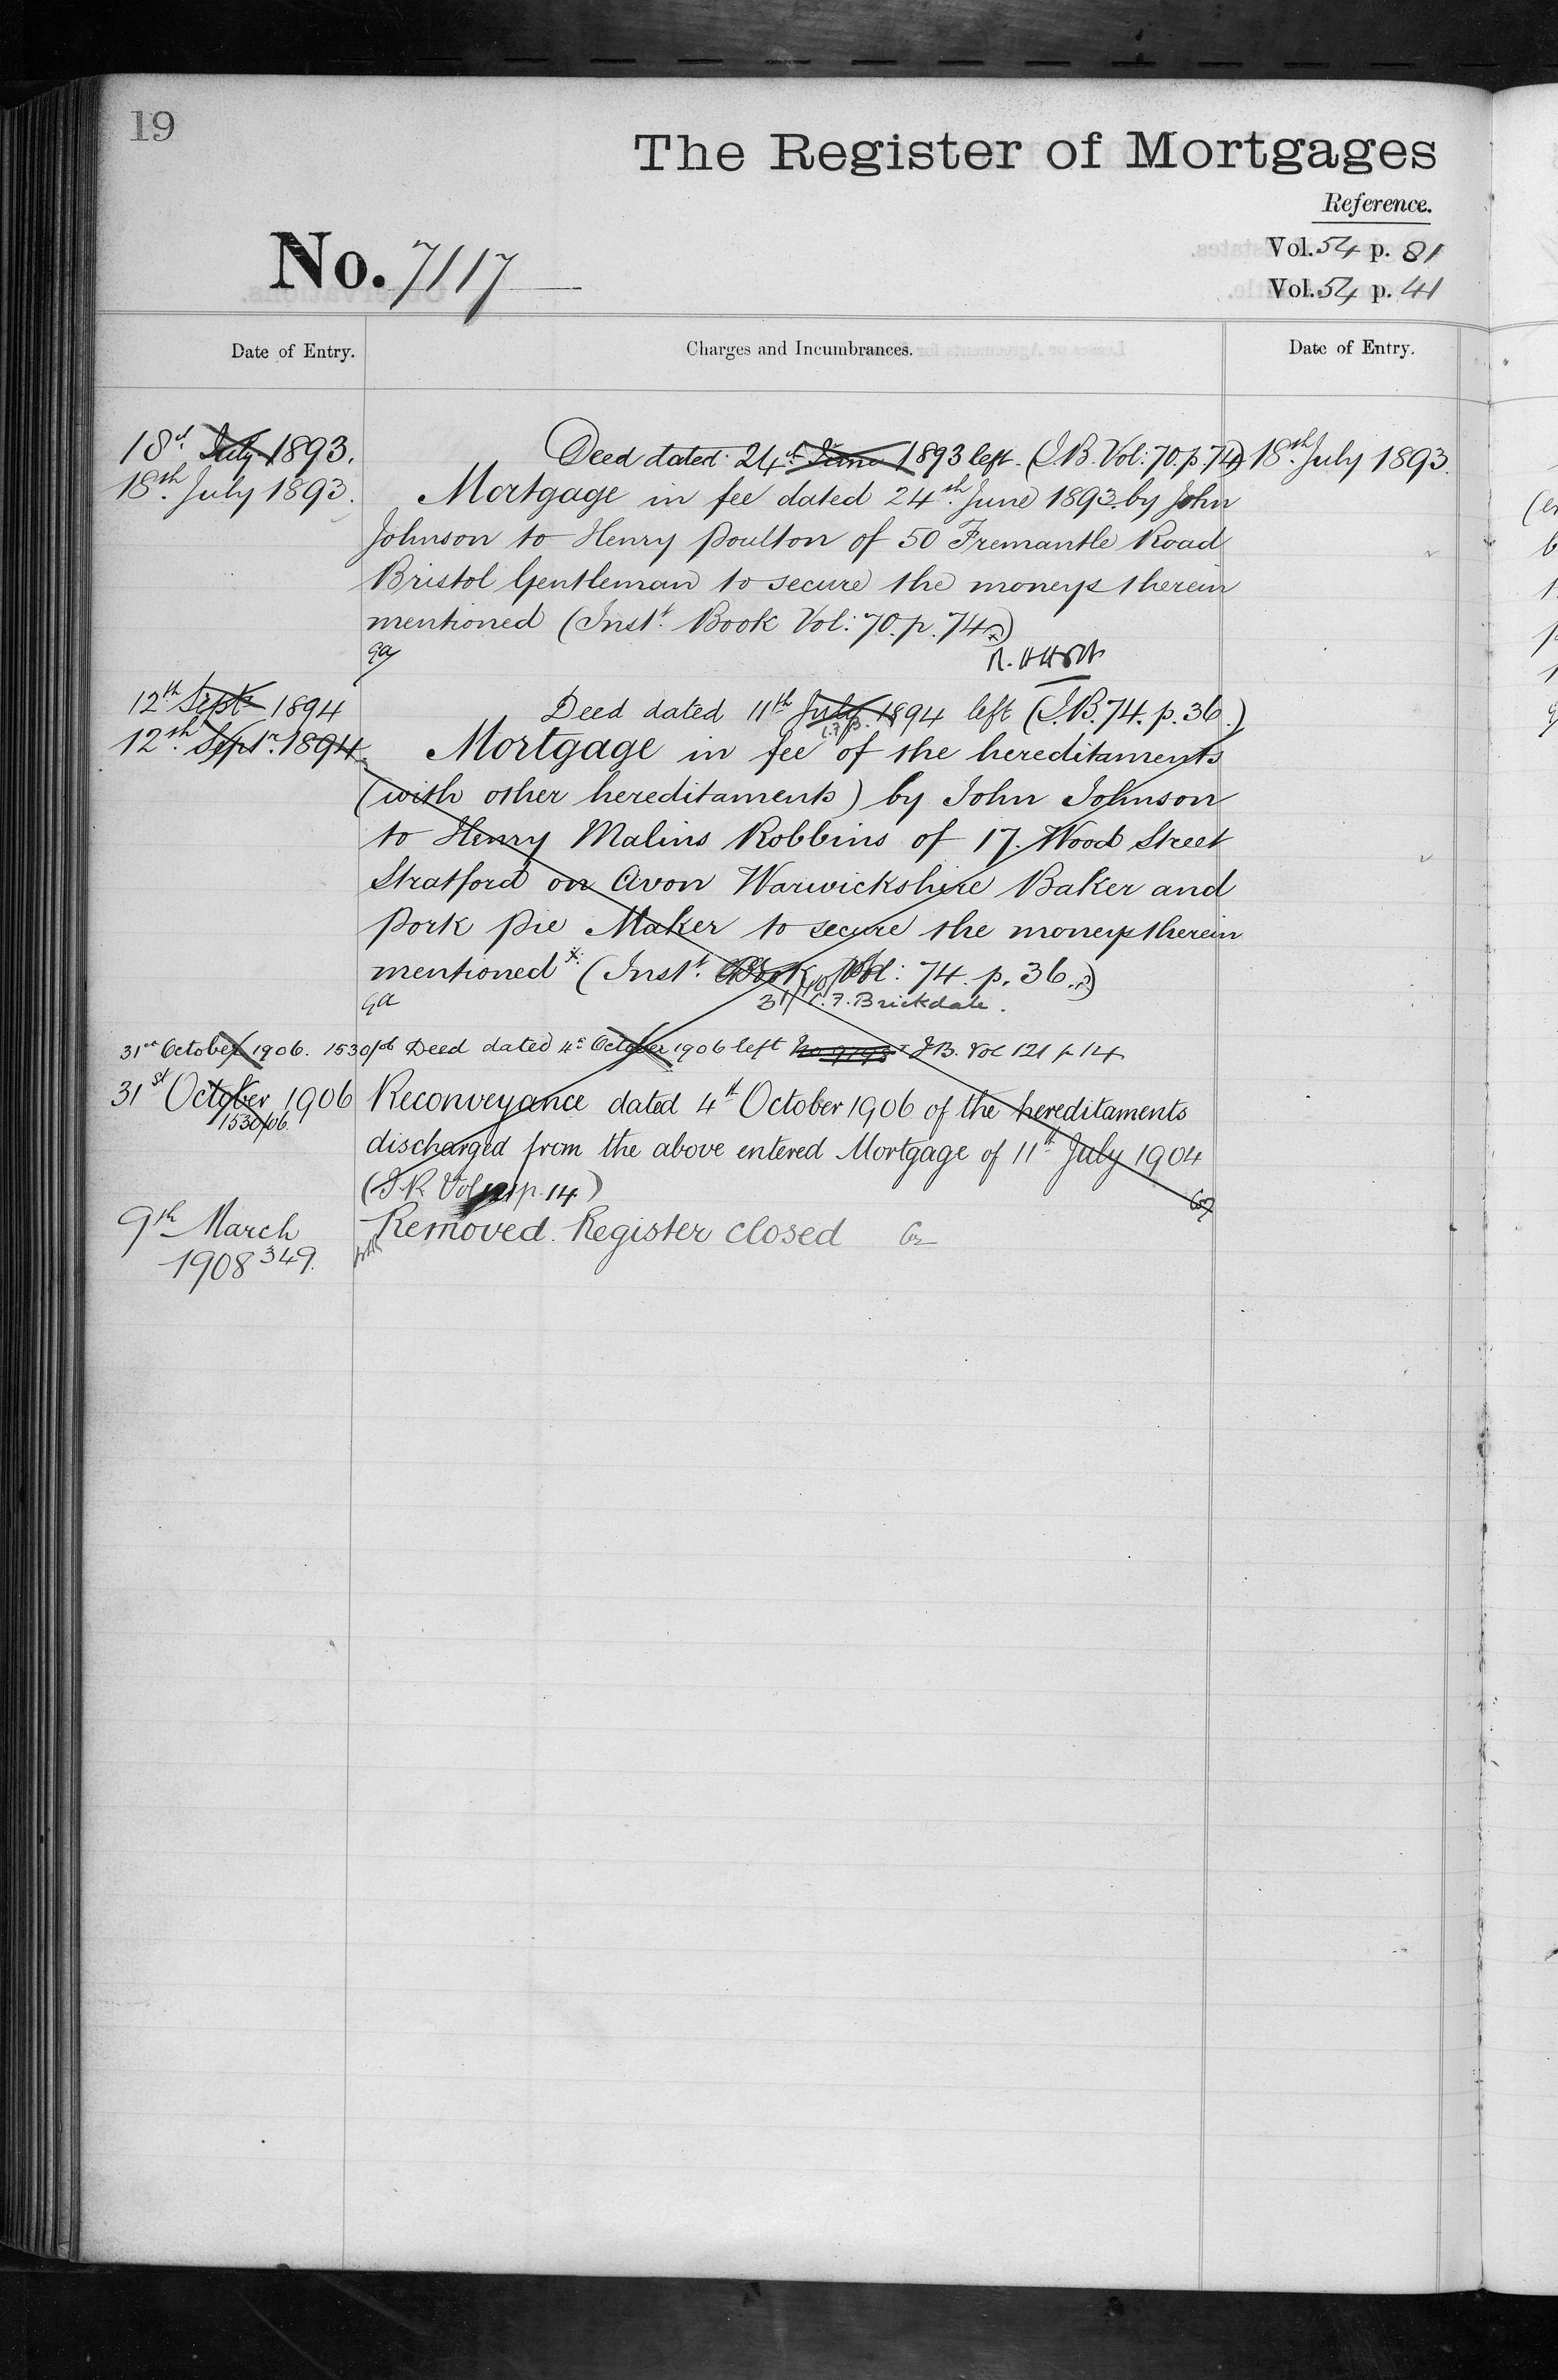 19
The Register of Mortgages
Reference.
No. 7117
Vol. 54 p. 81
Vol. 54 p. 41
Date of Entry.
Charges and Incumbrances.
Date of Entry.
18th July 1893.
Deed dated 24th June 1893 left. (I.B. Vol: 70. p. 74)
18th July 1893.
18th July 1893.
Mortgage in fee dated 24th June 1893 by John
Johnson to Henry Poulton of 50 Fremantle Road
Bristol Gentleman to secure the moneys therein
mentioned (Inst. Book Vol: 70. p. 74.)
12th Sept. 1894
Deed dated 11th July 1894 left (I.B. 74. p. 36.)
12th Septr. 1894.
Mortgage in fee of the hereditaments
(with other hereditaments) by John Johnson
to Henry Malins Robbins of 17. Wood Street
Stratford on Avon Warwickshire Baker and
Pork Pie Maker to secure the moneys therein
mentioned x (Inst. Book Vol: 74. p. 36.)
C.F. Brickdale.
31st October 1906. 1530/06 Deed dated 4th October 1906 left I.B. Vol 121 p 14
31st October 1906
1530/06.
Reconveyance dated 4th October 1906 of the hereditaments
discharged from the above entered Mortgage of 11th July 1904
(I.R. Vol 121 p. 14.)
9th March
1908 349.
Removed. Register closed